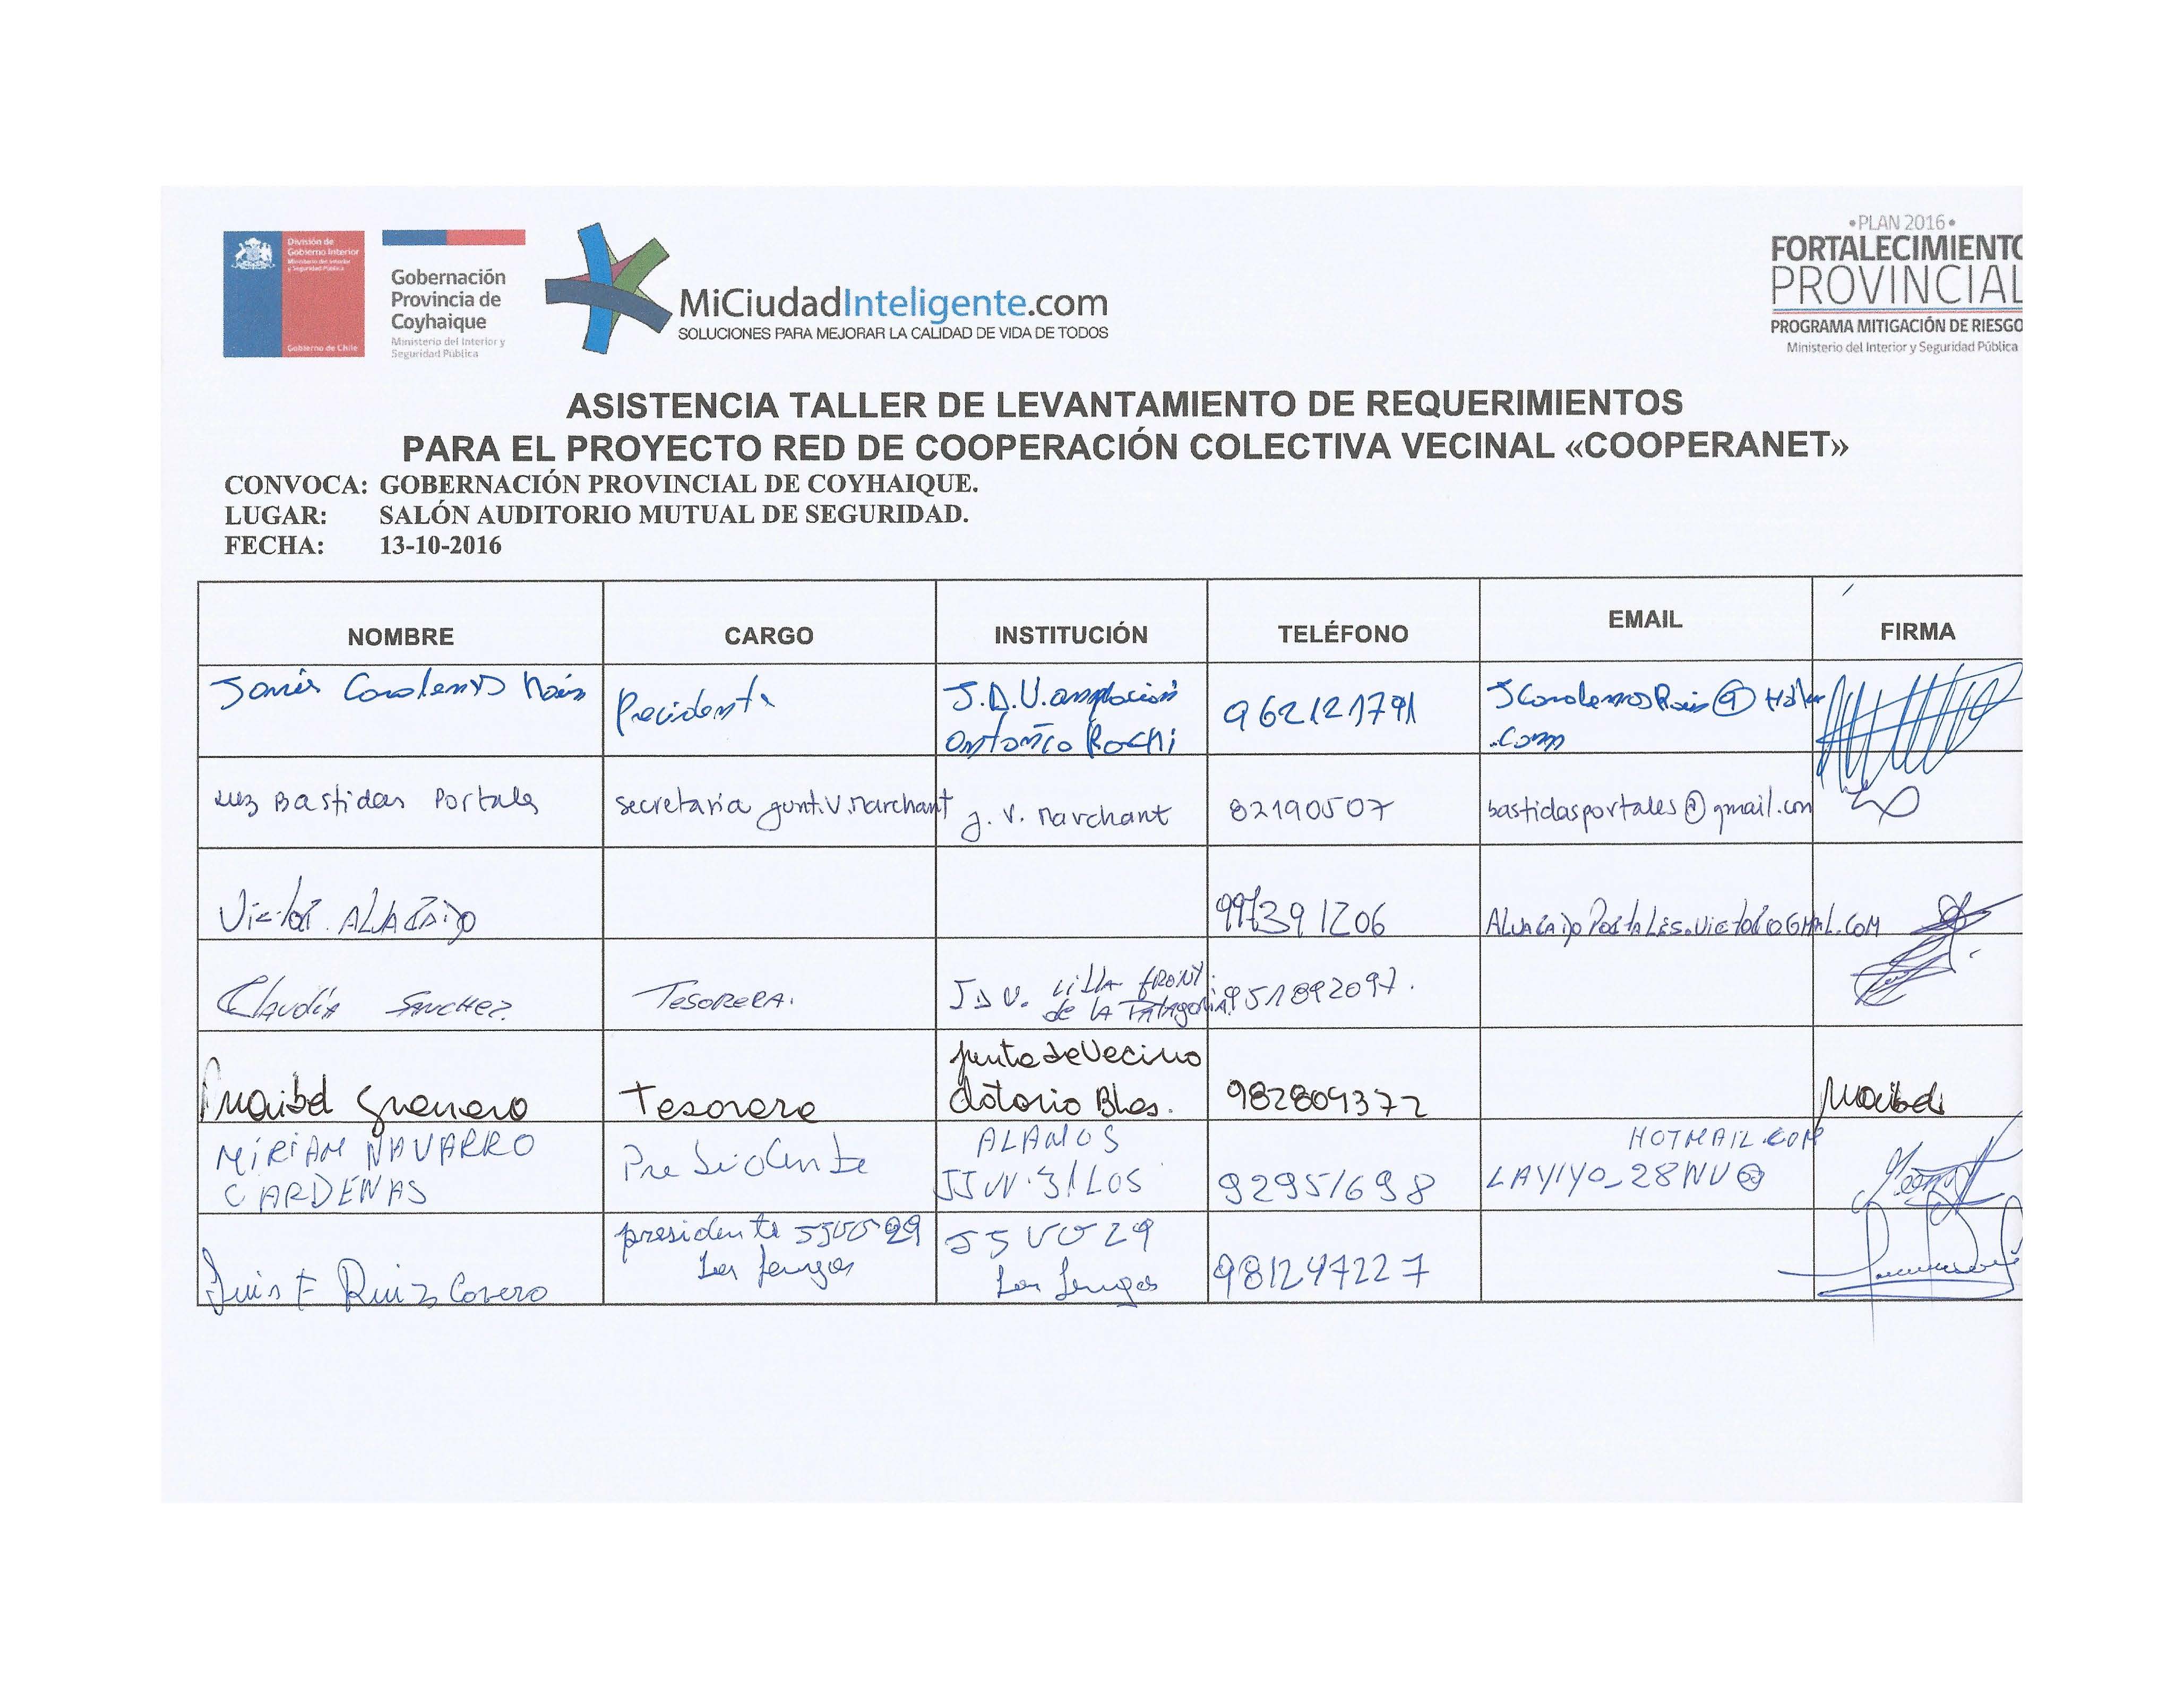 División de
Gobierno Interior
Ministerio del Interior
y Seguridad Pública
Gobierno de Chile
Gobernación
Provincia de
Coyhaique
Ministerio del Interior y
Seguridad Pública
MiCiudadInteligente.com
SOLUCIONES PARA MEJORAR LA CALIDAD DE VIDA DE TODOS
•PLAN 2016•
FORTALECIMIENTO
PROVINCIAL
PROGRAMA MITIGACIÓN DE RIESGO
Ministerio del Interior y Seguridad Pública
ASISTENCIA TALLER DE LEVANTAMIENTO DE REQUERIMIENTOS
PARA EL PROYECTO RED DE COOPERACIÓN COLECTIVA VECINAL «COOPERANET»
CONVOCA: GOBERNACIÓN PROVINCIAL DE COYHAIQUE.
LUGAR: SALÓN AUDITORIO MUTUAL DE SEGURIDAD.
FECHA: 13-10-2016
NOMBRE CARGO INSTITUCIÓN TELÉFONO EMAIL FIRMA
Precidente
J.D.V. ampliación
Antonio Rochi
.com
Luz Bastidas Portales secretaria junt.V.Marchant J. V. Marchant 82190507 bastidasportales@gmail.com
Victor. 997391206
Claudia Sanchez TESORERA. J D V. Villa FRONT
de la Patagonia 951892097.
Maibel Guerrero Tesorera junta de Vecino
Clotario Bles. 982809372 Maibel
MIRIAM NAVARRO
CARDENAS
Presidente
ALAMOS
JJVV.31 LOS
92951698
HOTMAIL.COM
LAYIYO_28NV@
Luis F Ruiz Covero
presidente JJVV 29
Las Lengas
JJVV 29
Las Lengas
981247227